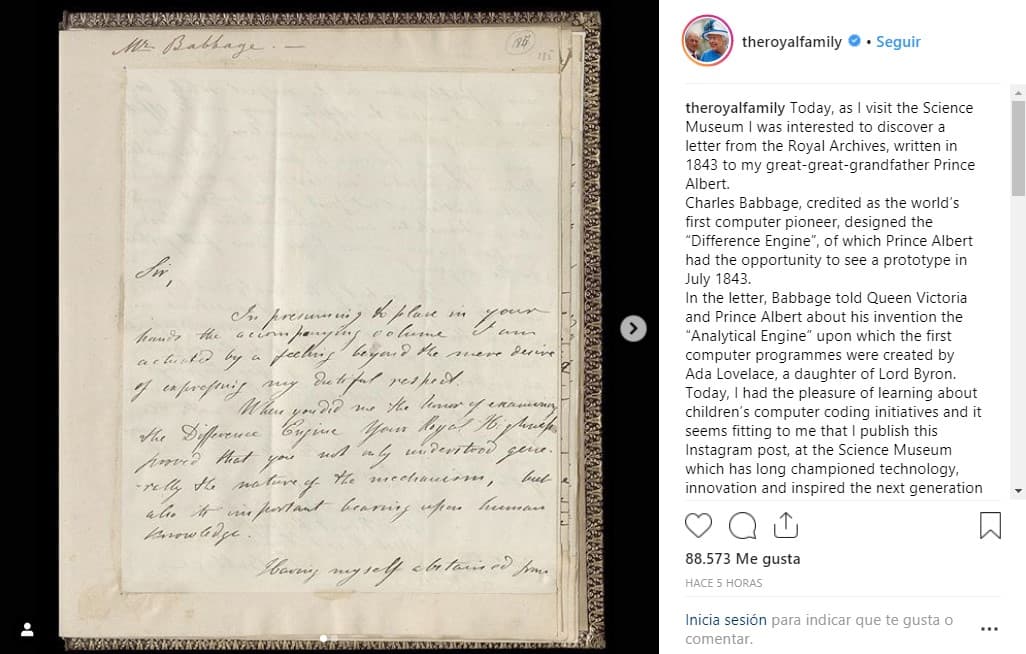 Mr Babbage. —
185
185
Sir,
In presuming to place in your
hands the accompanying volume I am
actuated by a feeling beyond the mere desire
of expressing my dutiful respect.
When you did me the honor of examining
the Difference Engine Your Royal Highness
proved that you not only understood gene-
-rally the nature of the mechanism, but
also its important bearing upon human
knowledge.
Having myself abstained from
theroyalfamily • Seguir
theroyalfamily Today, as I visit the Science
Museum I was interested to discover a
letter from the Royal Archives, written in
1843 to my great-great-grandfather Prince
Albert.
Charles Babbage, credited as the world's
first computer pioneer, designed the
“Difference Engine”, of which Prince Albert
had the opportunity to see a prototype in
July 1843.
In the letter, Babbage told Queen Victoria
and Prince Albert about his invention the
“Analytical Engine” upon which the first
computer programmes were created by
Ada Lovelace, a daughter of Lord Byron.
Today, I had the pleasure of learning about
children's computer coding initiatives and it
seems fitting to me that I publish this
Instagram post, at the Science Museum
which has long championed technology,
innovation and inspired the next generation
88.573 Me gusta
HACE 5 HORAS
Inicia sesión para indicar que te gusta o
comentar.